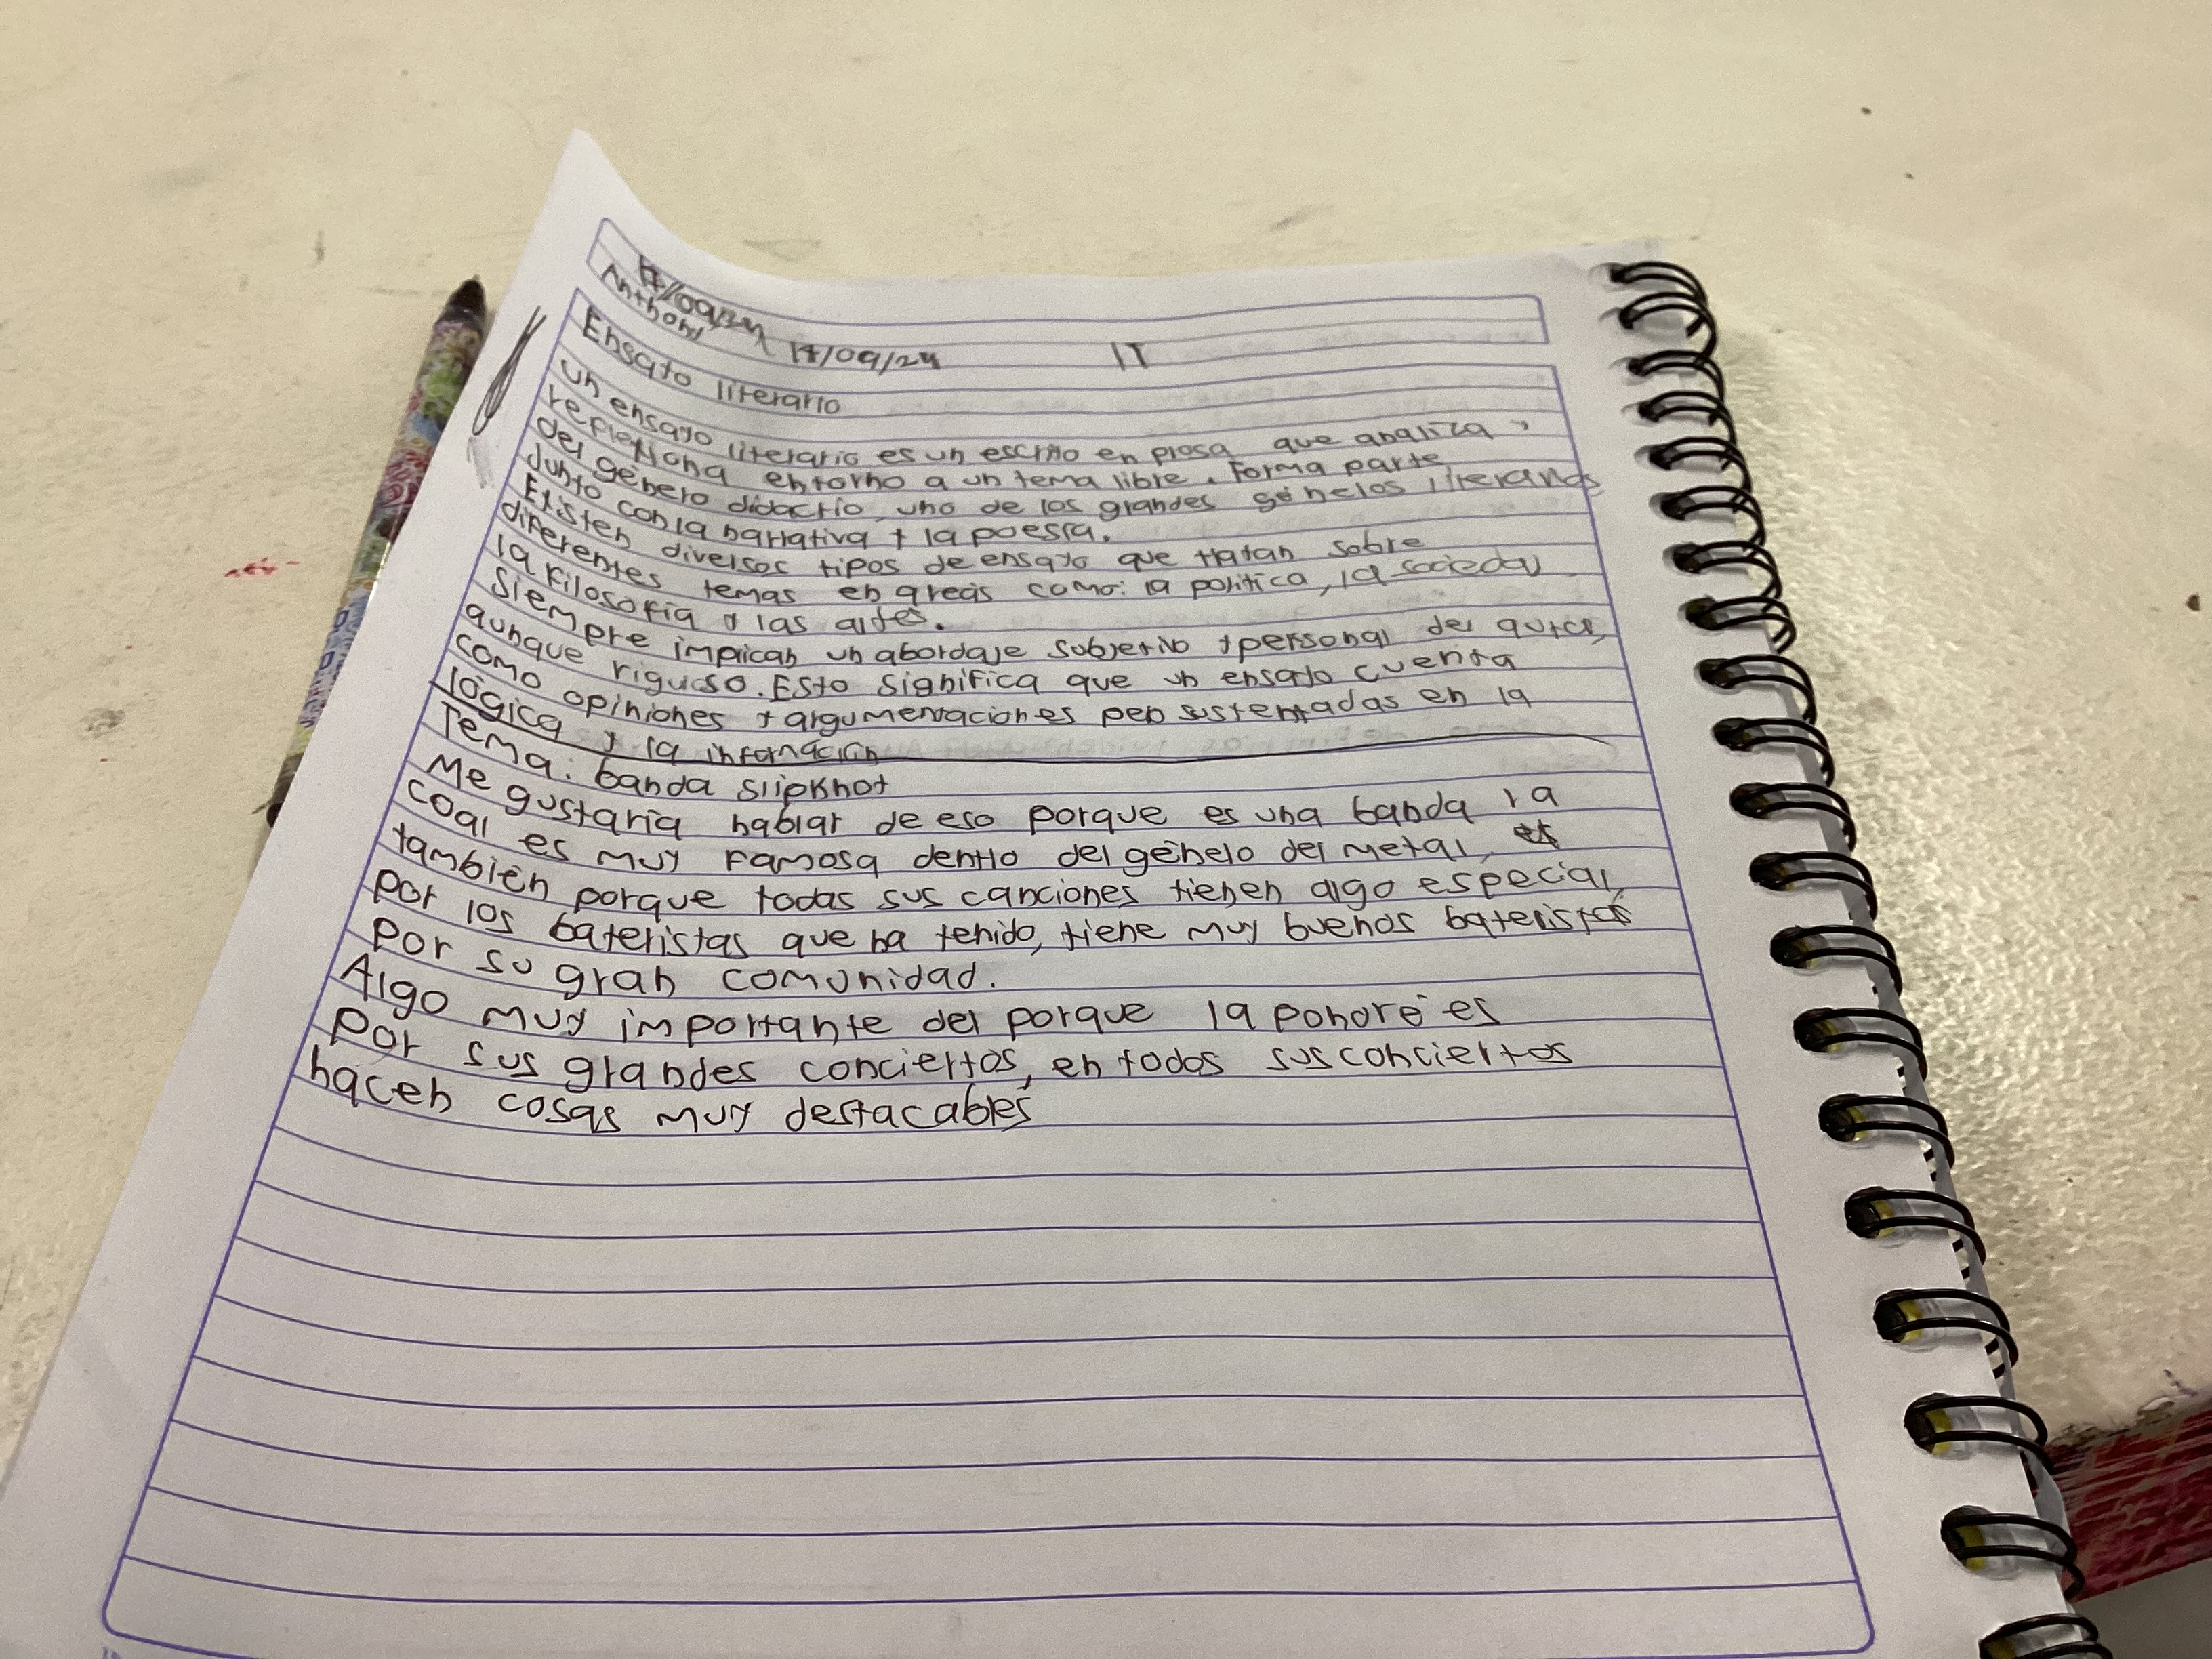 Anthony 17/09/24 1T
Ensayo literario
Un ensayo literario es un escrito en prosa que analiza y
reflexiona entorno a un tema libre. Forma parte
del género didactio, uno de los grandes géneros literarios
Junto con la narrativa y la poesia.
Existen diversos tipos de ensayo que tratan sobre
diferentes temas en areas como: la politica, la sociedad
la filosofia y las artes.
Siempre implican un abordaje subjetivo y personal del autor,
aunque riguroso. Esto significa que un ensayo cuenta
como opiniones y argumentaciones pero sustentadas en la
lógica y la información
Tema: banda Slipknot
Me gustaria hablar de eso porque es una banda la
coal es muy famosa dentro del género del metal,
también porque todas sus canciones tienen algo especial,
por los bateristas que ha tenido, tiene muy buenos bateristas
por su gran comunidad.
Algo muy importante del porque la pondre es
por sus grandes conciertos, en todos sus conciertos
hacen cosas muy destacables